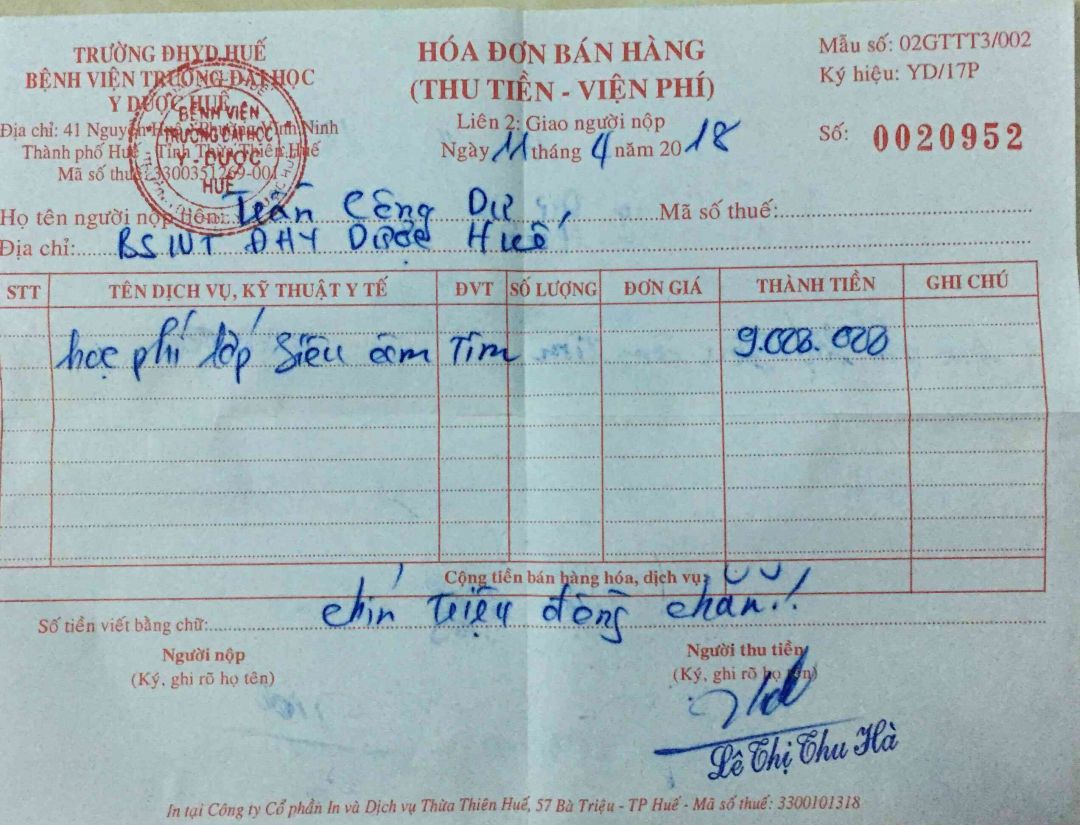 TRƯỜNG ĐHYD HUẾ
BỆNH VIỆN TRƯỜNG ĐẠI HỌC
Y DƯỢC HUẾ
Địa chỉ: 41 Nguyễn Huệ - Phường Vĩnh Ninh
Thành phố Huế - Tỉnh Thừa Thiên Huế
Mã số thuế: 3300351269-001
BỆNH VIỆN
TRƯỜNG ĐẠI HỌC
Y - DƯỢC
HUẾ
HÓA ĐƠN BÁN HÀNG
(THU TIỀN - VIỆN PHÍ)
Liên 2: Giao người nộp
Ngày 11 tháng 4 năm 2018
Mẫu số: 02GTTT3/002
Ký hiệu: YD/17P
Số: 0020952
Họ tên người nộp tiền: Trần Công Duy Mã số thuế:
Địa chỉ: BSNT ĐHY Dược Huế
STT TÊN DỊCH VỤ, KỸ THUẬT Y TẾ ĐVT SỐ LƯỢNG ĐƠN GIÁ THÀNH TIỀN GHI CHÚ
học phí lớp Siêu âm Tim 9.000.000
Cộng tiền bán hàng hóa, dịch vụ:
Số tiền viết bằng chữ: chín triệu đồng chẵn./.
Người nộp Người thu tiền
(Ký, ghi rõ họ tên) (Ký, ghi rõ họ tên)
Lê Thị Thu Hà
In tại Công ty Cổ phần In và Dịch vụ Thừa Thiên Huế, 57 Bà Triệu - TP Huế - Mã số thuế: 3300101318